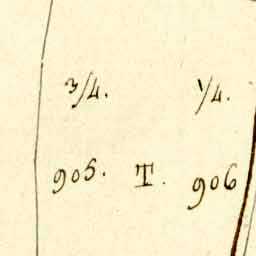 3/4. 1/4.
905. T. 906